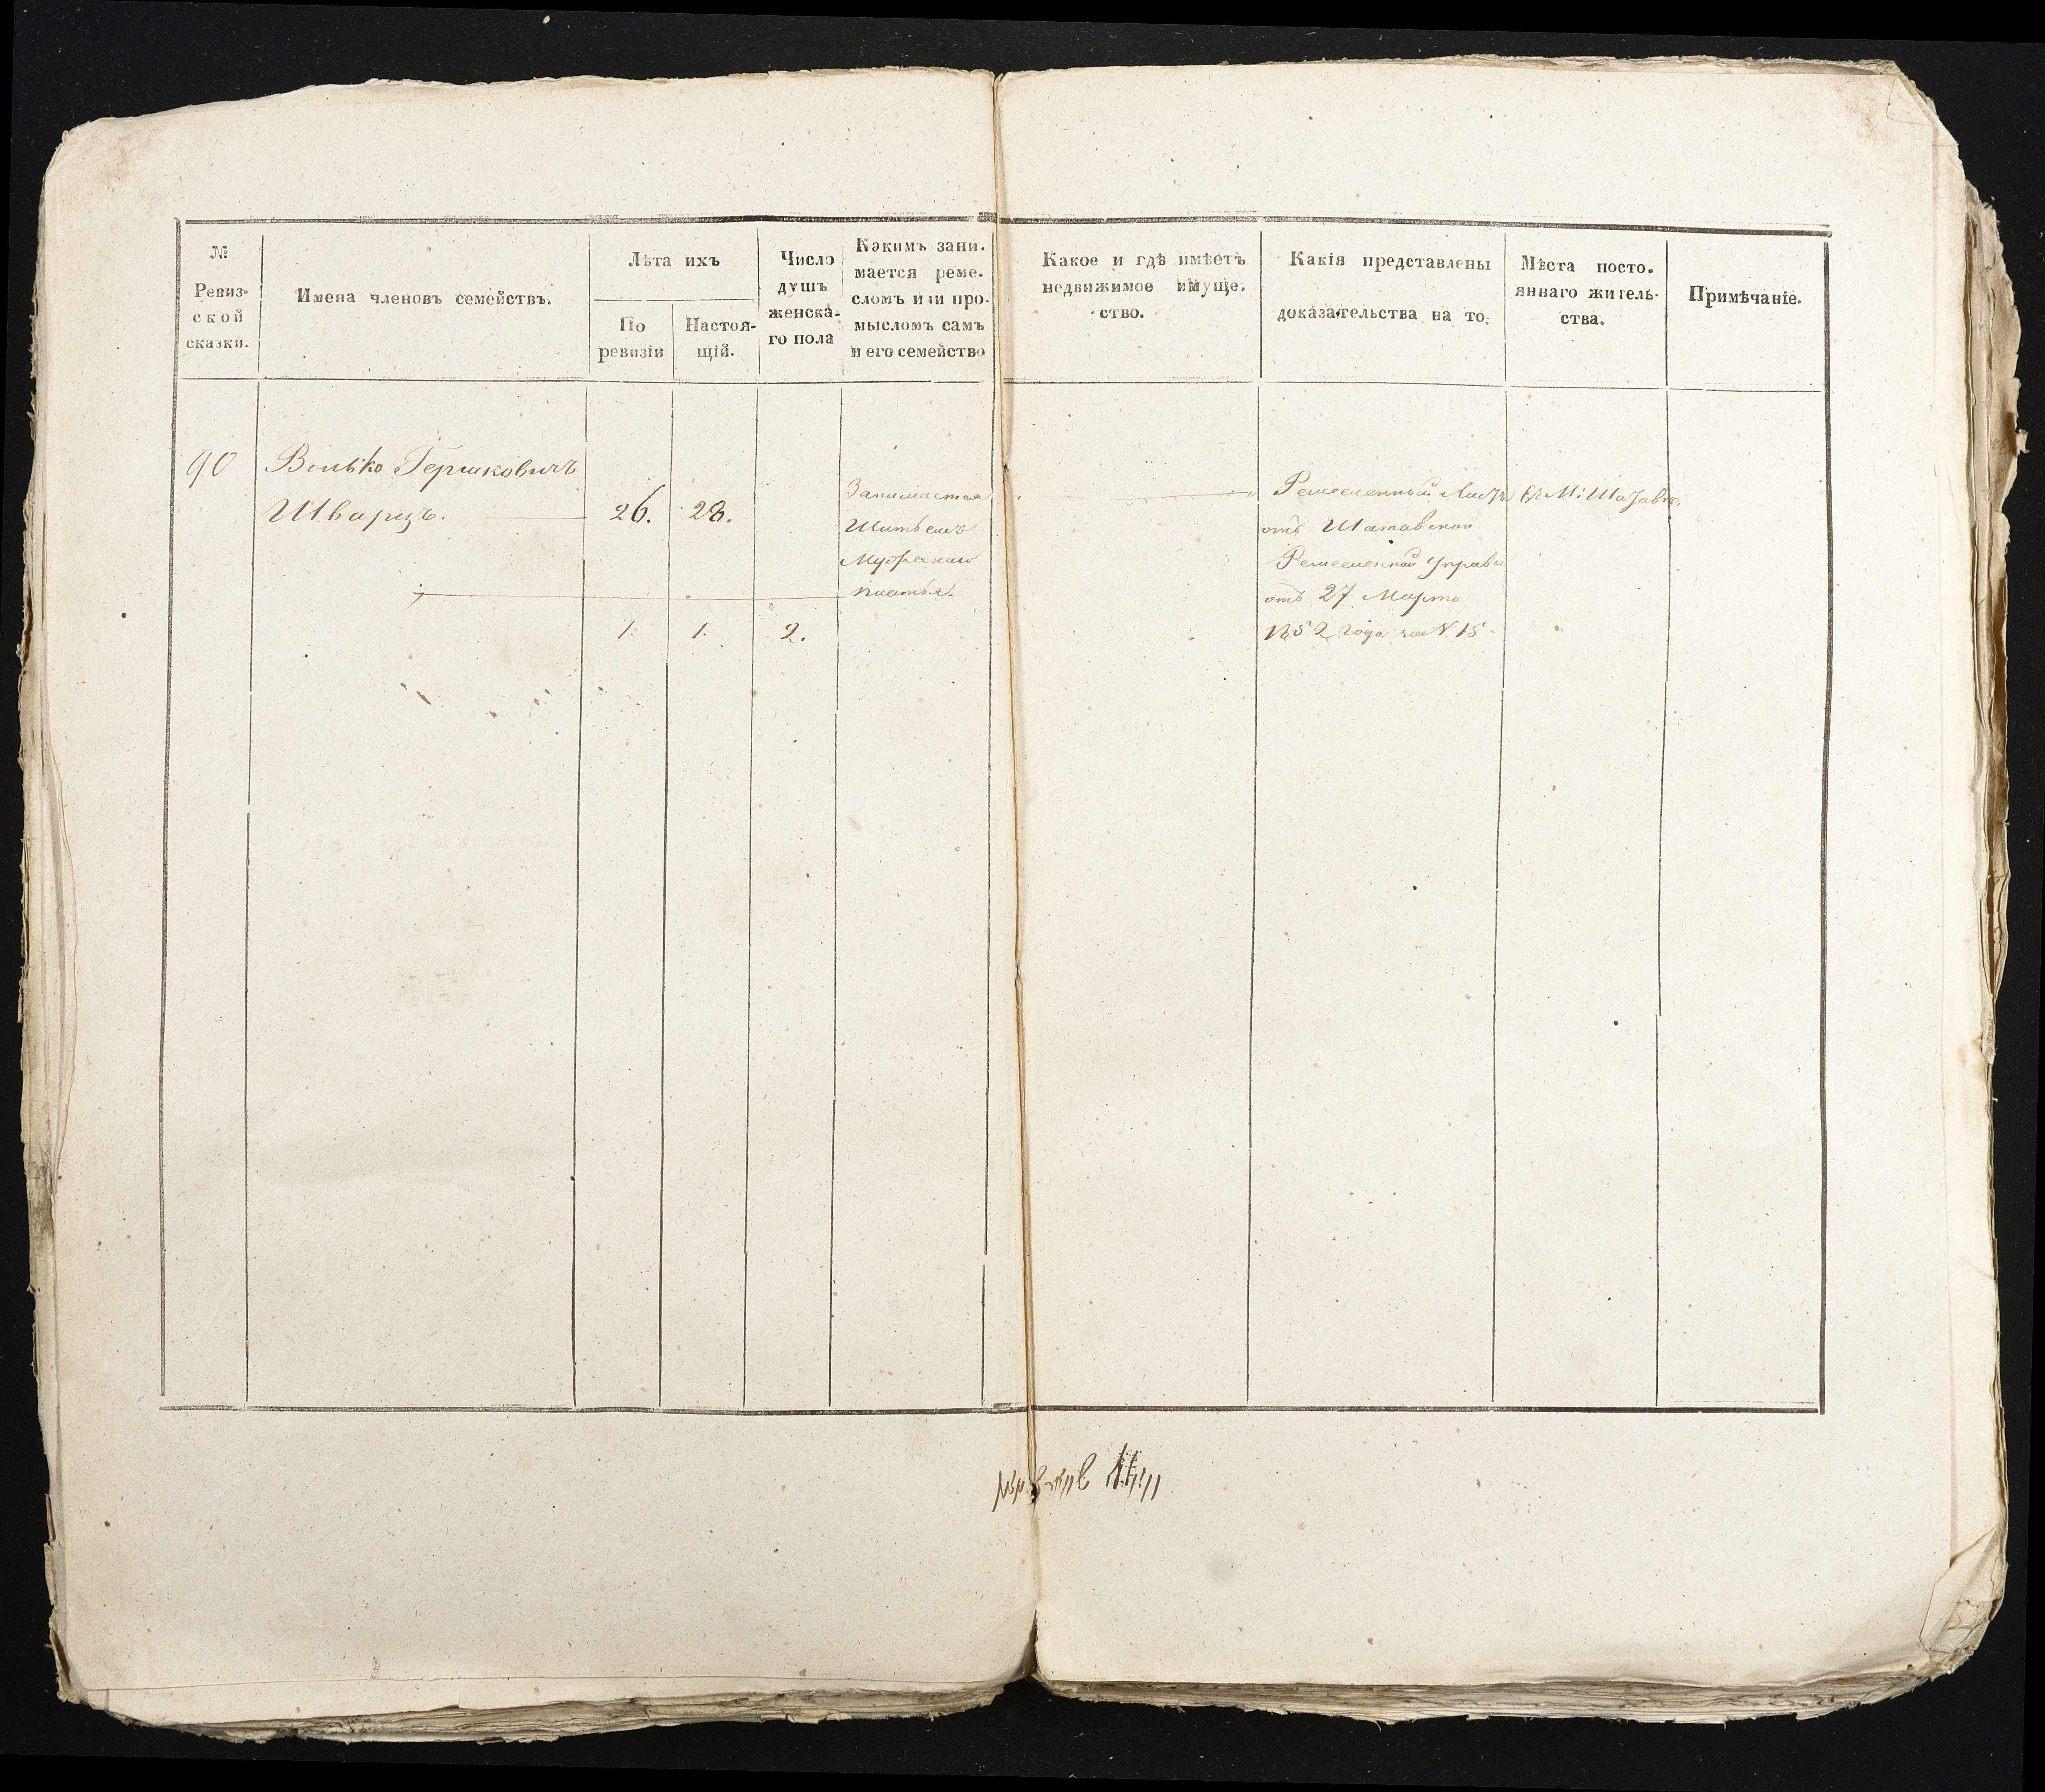 №
Ревиз-
ской
сказки.
Имена членовъ семействъ.
Лѣта ихъ
По
ревизіи
Настоя-
щій.
Число
душъ
женска-
го пола
Какимъ зани-
мается реме-
сломъ или про-
мысломъ самъ
и его семейство
Какое и гдѣ имѣетъ
недвижимое имуще-
ство.
Какія представлены
доказательства на то.
Мѣста посто-
яннаго житель-
ства.
Примѣчаніе.
90
Волько Гершковичъ
Шварцъ.
26. 28.
Занимается
Шитьемъ
Мужескаго
платья.
1. 1. 2.
Ремесленный Листъ
отъ Шатавской
Ремесленной Управы
отъ 27 Марта
1852 года за N 15.